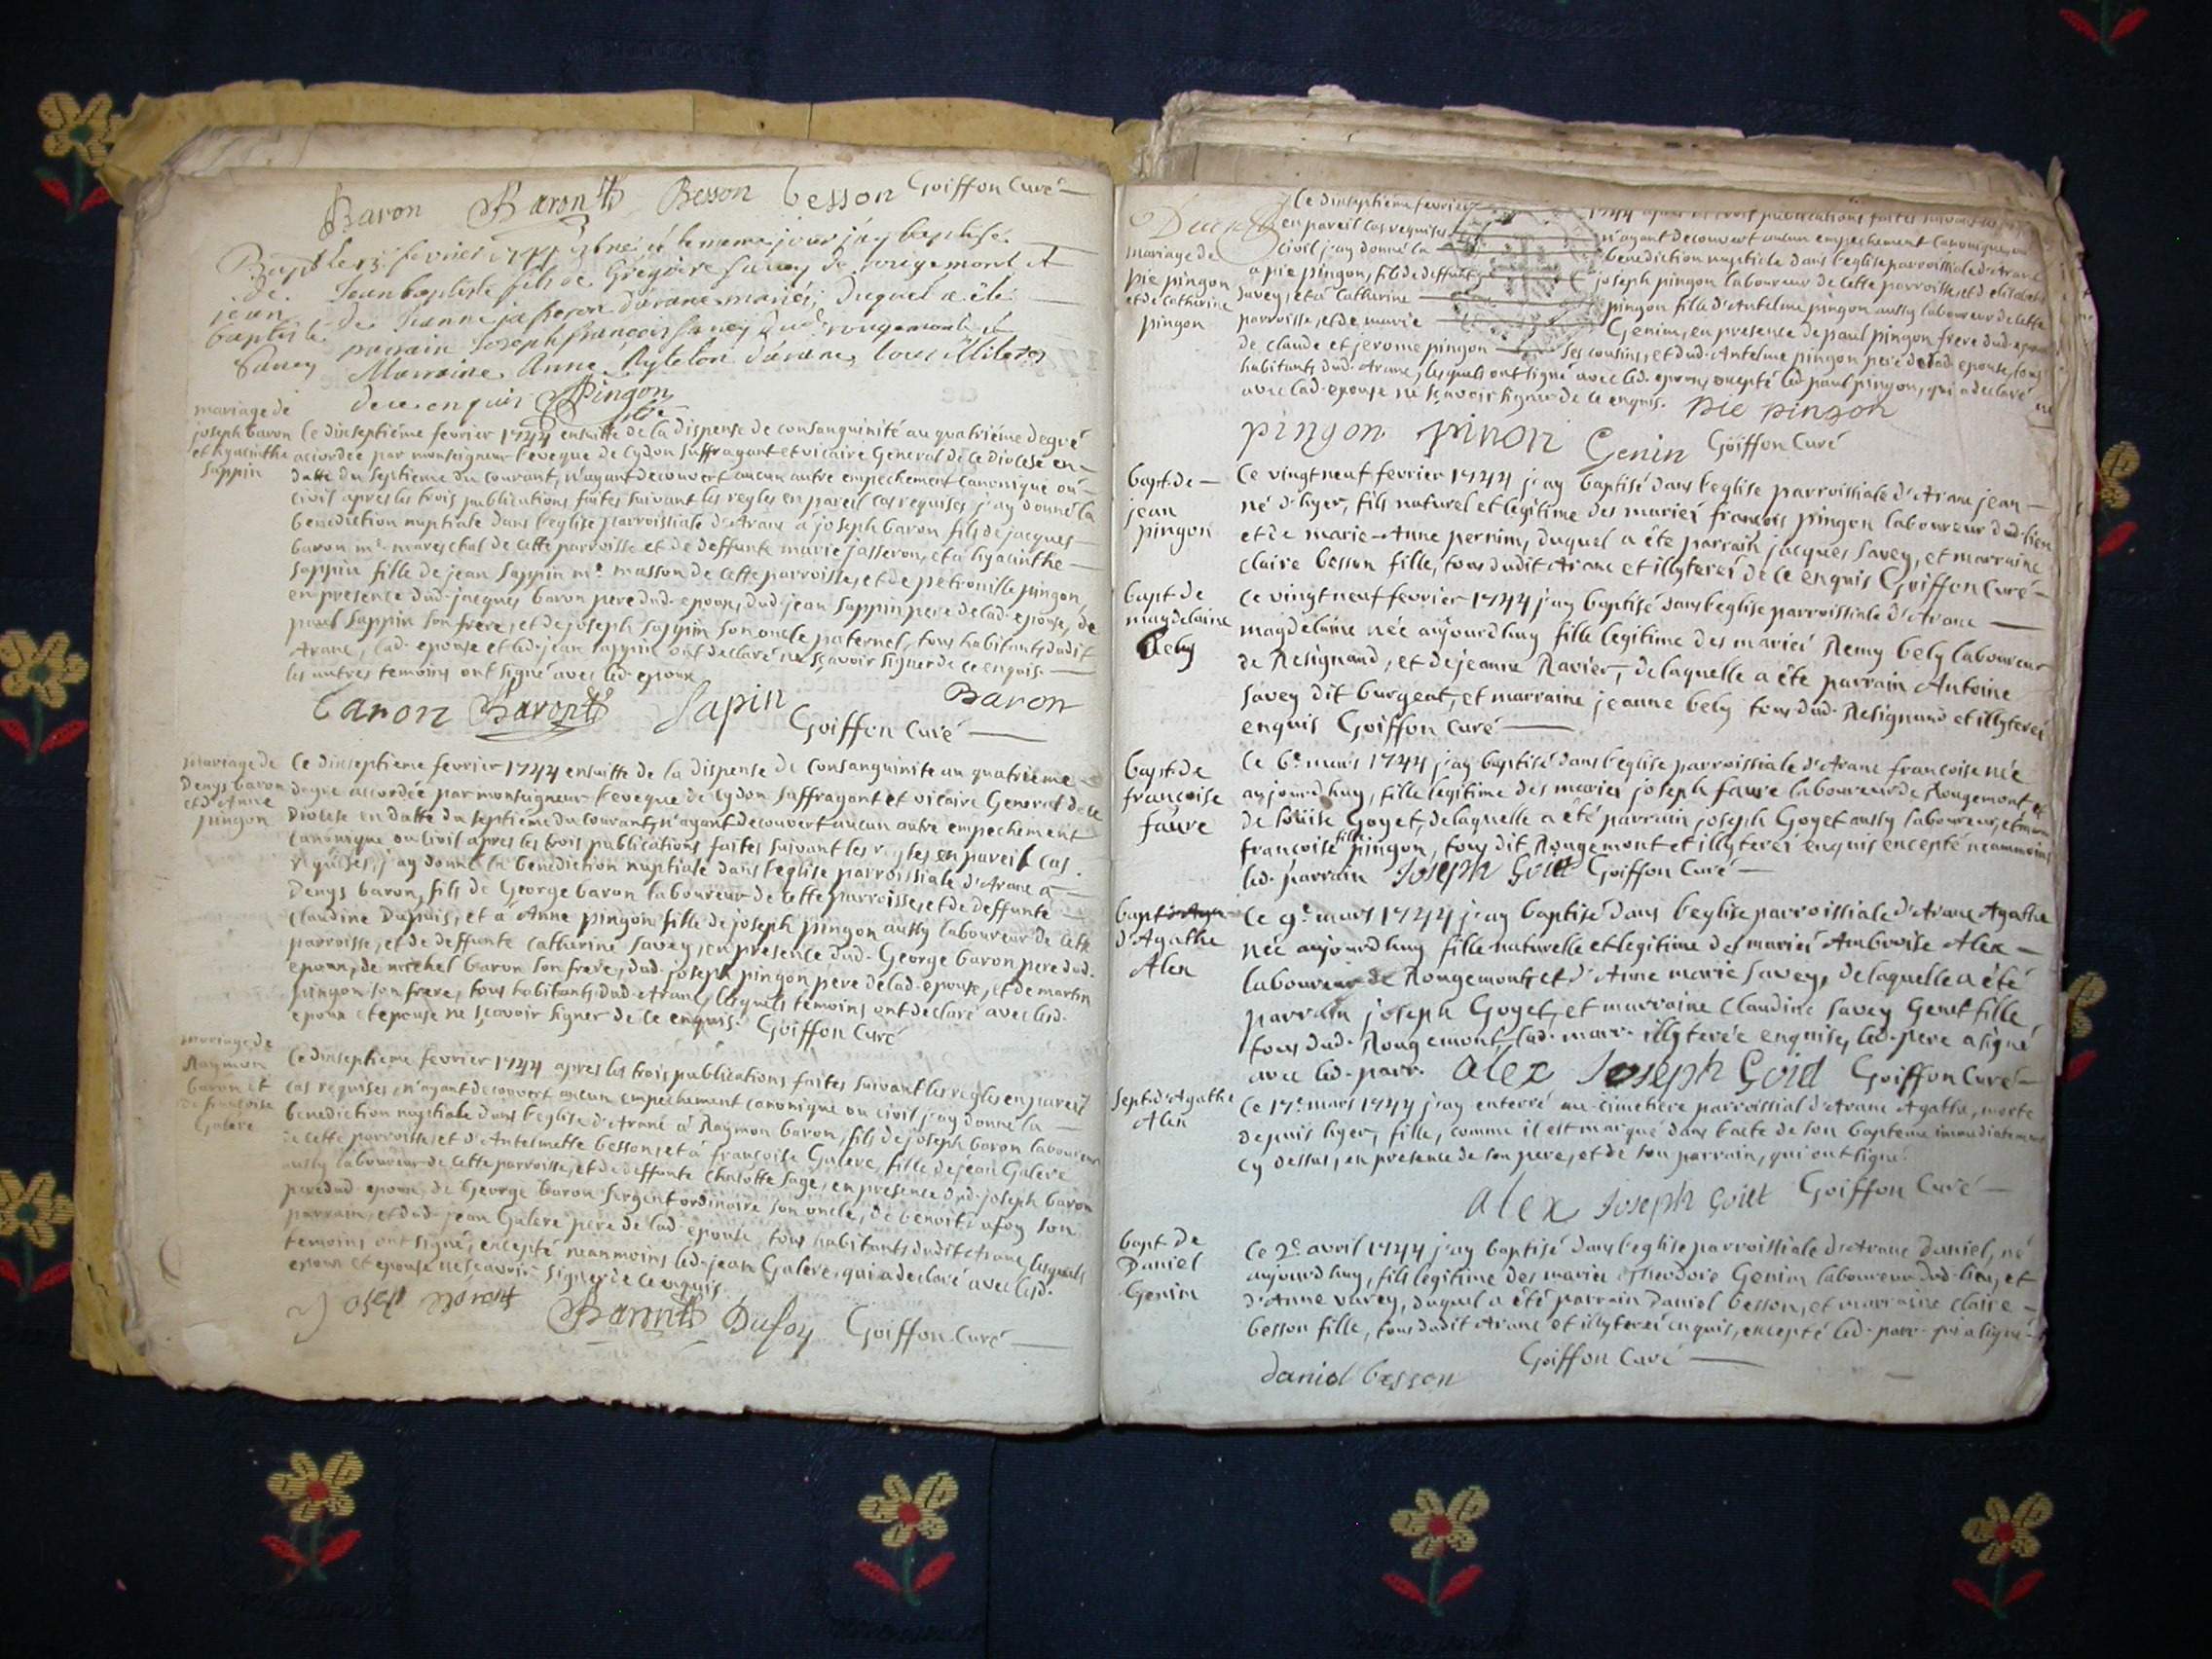 Baron Baront Besson besson Goiffon Curé
Bapt le 13 fevrier 1744 est né et le meme jour j'ay baptisé
de Jean baptiste fils de Grégoire Savey de rougemont et
jean de Jeanne jasseron d'arane mariés, duquel a été
baptiste parrain Joseph françois Savey dud rougemont et
Savey Marraine Anne d'arane, tous illiterez
de ce enquis Pingon
mariage de
joseph baron Ce dixseptiéme fevrier 1744 ensuitte de la dispense de consanguinité au quatriéme degré
et hyacinthe accordée par monseigneur l'eveque de Lydon suffragant et vicaire General de ce diocese en
Sappin datte du septieme du courant, n'ayant decouvert aucun autre empechement canonique ou
civil apres les trois publications faites suivant les regles en pareil cas requises j'ay donné la
benediction nuptiale dans l'eglise parroissiale d'Aranc a joseph baron fils de jacques
baron me mareschal de cette parroisse et de deffunte marie jasseron, et a hyacinthe
Sappin fille de jean Sappin me masson de cette parroisse, et de petronille pingon
en presence dud. jacques baron pere dud. epoux, dud. jean Sappin pere de lad. epouse, de
paul Sappin son frere, et de joseph Sappin son oncle paternel, tous habitants dudit
Aranc, lad. epouse et led. jean Sappin ont declaré ne sçavoir signer de ce enquis
les autres temoins ont signé avec led. epoux
baron Baront Sapin Baron
Goiffon Curé
mariage de Ce dixseptieme fevrier 1744 ensuitte de la dispense de Consanguinite au quatrieme
Denys baron degre accordée par monseigneur l'eveque de Lydon suffragant et vicaire General de ce
et d'Anne Diocese en datte du septieme du courant, n'ayant decouvert aucun autre empechement
pingon Canonique ou Civil apres les trois publications faites suivant les regles en pareil cas
requises, j'ay donné la benediction nuptiale dans l'eglise parroissiale d'Aranc a
Denys baron, fils de George baron laboureur de cette parroisse, et de deffunte
Claudine Dupuis, et a Anne pingon fille de joseph pingon aussy laboureur de cette
parroisse, et de deffunte Catherine Savey, en presence dud. George baron pere dud.
epoux, de michel baron son frere, dud. joseph pingon pere de lad. epouse, et de martin
pingon son frere, tous habitants dud. Aranc, lesquels temoins ont declaré avec lesd.
epoux et epouse ne sçavoir signer de ce enquis. Goiffon Curé
mariage de
Raymon Ce dixseptieme fevrier 1744 apres les trois publications faites suivant les regles en pareil
baron et cas requises, n'ayant decouvert aucun empechement canonique ou civil j'ay donné la
de françoise benediction nuptiale dans l'eglise d'Aranc a Raymon baron, fils de joseph baron laboureur
Galere de cette parroisse, et d'Antelmette besson, et a françoise Galere, fille de jean Galere
aussy laboureur de cette parroisse, et de deffunte Charlotte Sage, en presence dud. joseph baron
pere dud. epoux, de George baron Sergent ordinaire son oncle, de benoit dufoy son
parrain, et dud. jean Galere pere de lad. epouse, tous habitants dudit Aranc, lesquels
temoins ont signé, excepté neanmoins led. jean Galere, qui a declaré avec lesd.
epoux et epouse ne scavoir signer de ce enquis
Joseph Baront Baront Dufoy Goiffon Curé
Ce dixseptieme fevrier 1744 apres les trois publications faites suivant
en pareil cas requises n'ayant decouvert aucun empechement Canonique ou
mariage de Civil j'ay donné la benediction nuptiale dans l'eglise parroissiale d'Aranc
pie pingon a pie pingon, fils de deffunt joseph pingon laboureur de cette parroisse, et d
et de Catherine Savey, et a Catherine pingon fille d'Antelme pingon aussy laboureur de cette
pingon parroisse, et de marie Genin, en presence de paul pingon frere dud. epoux
de claude et jerome pingon ses cousins, et dud. Antelme pingon pere de lad. epouse, tous
habitants dud. Aranc, lesquels ont signé avec led. epoux, excepté led. paul pingon, qui a declaré
avec lad. epouse ne sçavoir signer de ce enquis. Pie pingon
pingon pinon Genin Goiffon Curé
bapt. de Ce vingt neuf fevrier 1744 j'ay baptisé dans l'eglise parroissiale d'Aranc jean
jean né d'hyer, fils naturel et legitime des mariés françois pingon laboureur dud. lieu
pingon et de marie-Anne pernin, duquel a été parrain jacques Savey, et marraine
claire besson fille, tous dudit Aranc et illyterés de ce enquis Goiffon Curé
bapt. de Ce vingt neuf fevrier 1744 j'ay baptisé dans l'eglise parroissiale d'Aranc
magdelaine magdelaine née aujourdhuy fille legitime des mariés Remy bely laboureur
Bely de Resignand, et de jeanne Ravier, de laquelle a été parrain Antoine
Savey dit burgeat, et marraine jeanne bely tous dud. Resignand et illyterés
enquis Goiffon Curé
bapt. de Ce 6e mars 1744 j'ay baptisé dans l'eglise parroissiale d'Aranc françoise née
françoise aujourdhuy, fille legitime des mariés joseph faure laboureur de Rougemont et
faure de loüise Goyet, de laquelle a été parrain joseph Goyet aussy laboureur, et marr
françoise fille pingon, tous dit Rougemont et illyterés enquis excepté neanmoins
led. parrain Joseph Goiet Goiffon Curé
bapt d'Aga Ce 9e mars 1744 j'ay baptisé dans l'eglise parroissiale d'Aranc Agathe
d'Agathe née aujourdhuy fille naturelle et legitime des mariés Ambroise Alex
Alex laboureur de Rougemont, et d'Anne marie Savey, de laquelle a été
parrain joseph Goyet, et marraine Claudine Savey Genet fille
tous dud. Rougemont, lad. marr. illyterée enquise, led. pere a signé
avec led. parr. alex Joseph Goiet Goiffon Curé
Sept. d'Agathe Ce 17e mars 1744 j'ay enterré au cimetiere parroissial d'Aranc Agathe, morte
Alex depuis hyer, fille, comme il est marqué dans l'acte de son bapteme immediatement
cy dessus, en presence de son pere, et de son parrain, qui ont signé.
alex Joseph Goiet Goiffon Curé
bapt. de Ce 2e avril 1744 j'ay baptisé dans l'eglise parroissiale d'Aranc Daniel, né
Daniel aujourdhuy, fils legitime des mariés theodore Genin laboureur dud. lieu, et
Genin d'Anne varey, duquel a été parrain Daniel besson, et marraine claire
besson fille, tous dudit Aranc et illyterés enquis, excepté led. parr. qui a signé
daniel besson Goiffon Curé